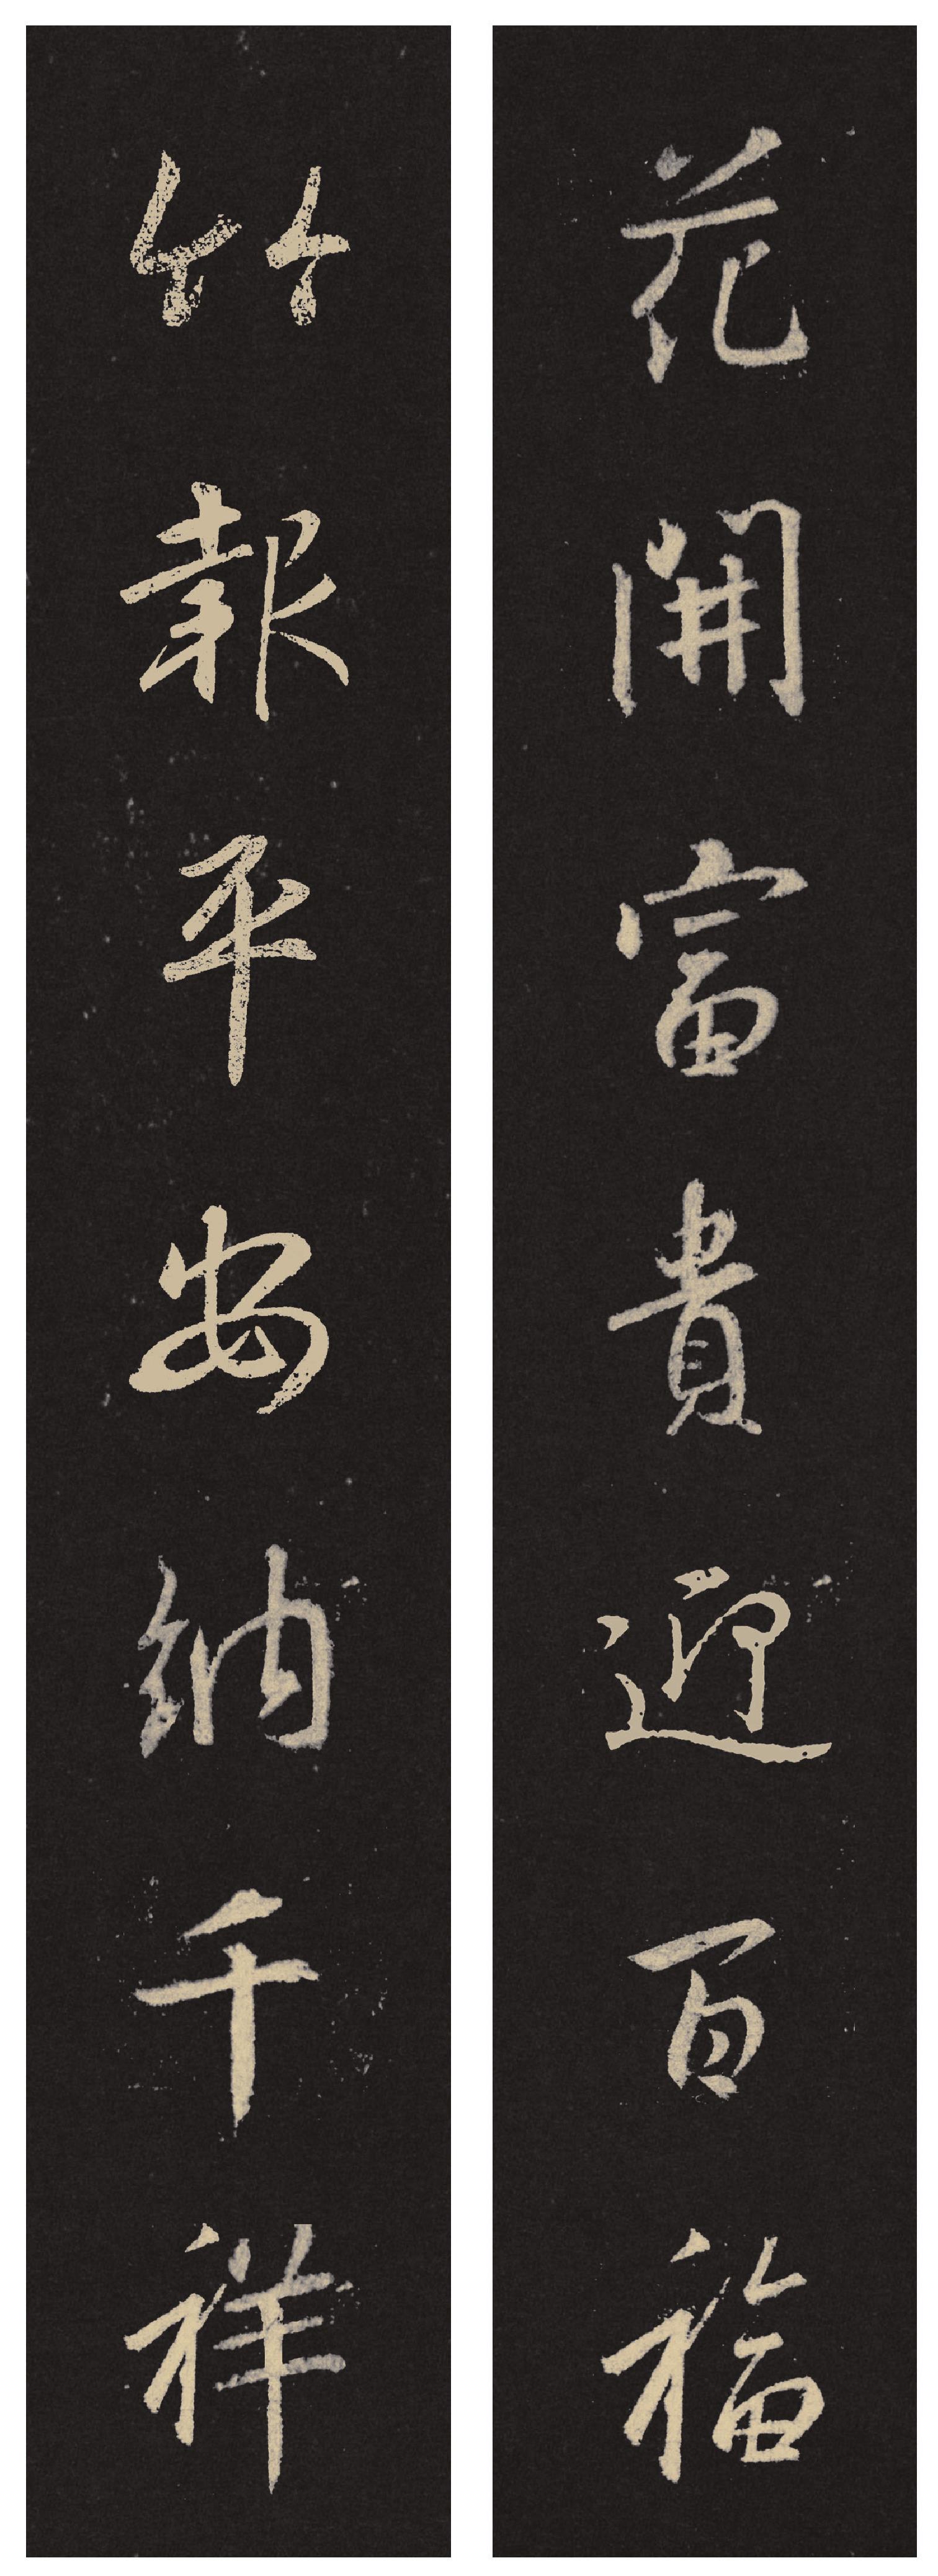 花開富貴迎百福
竹報平安納千祥